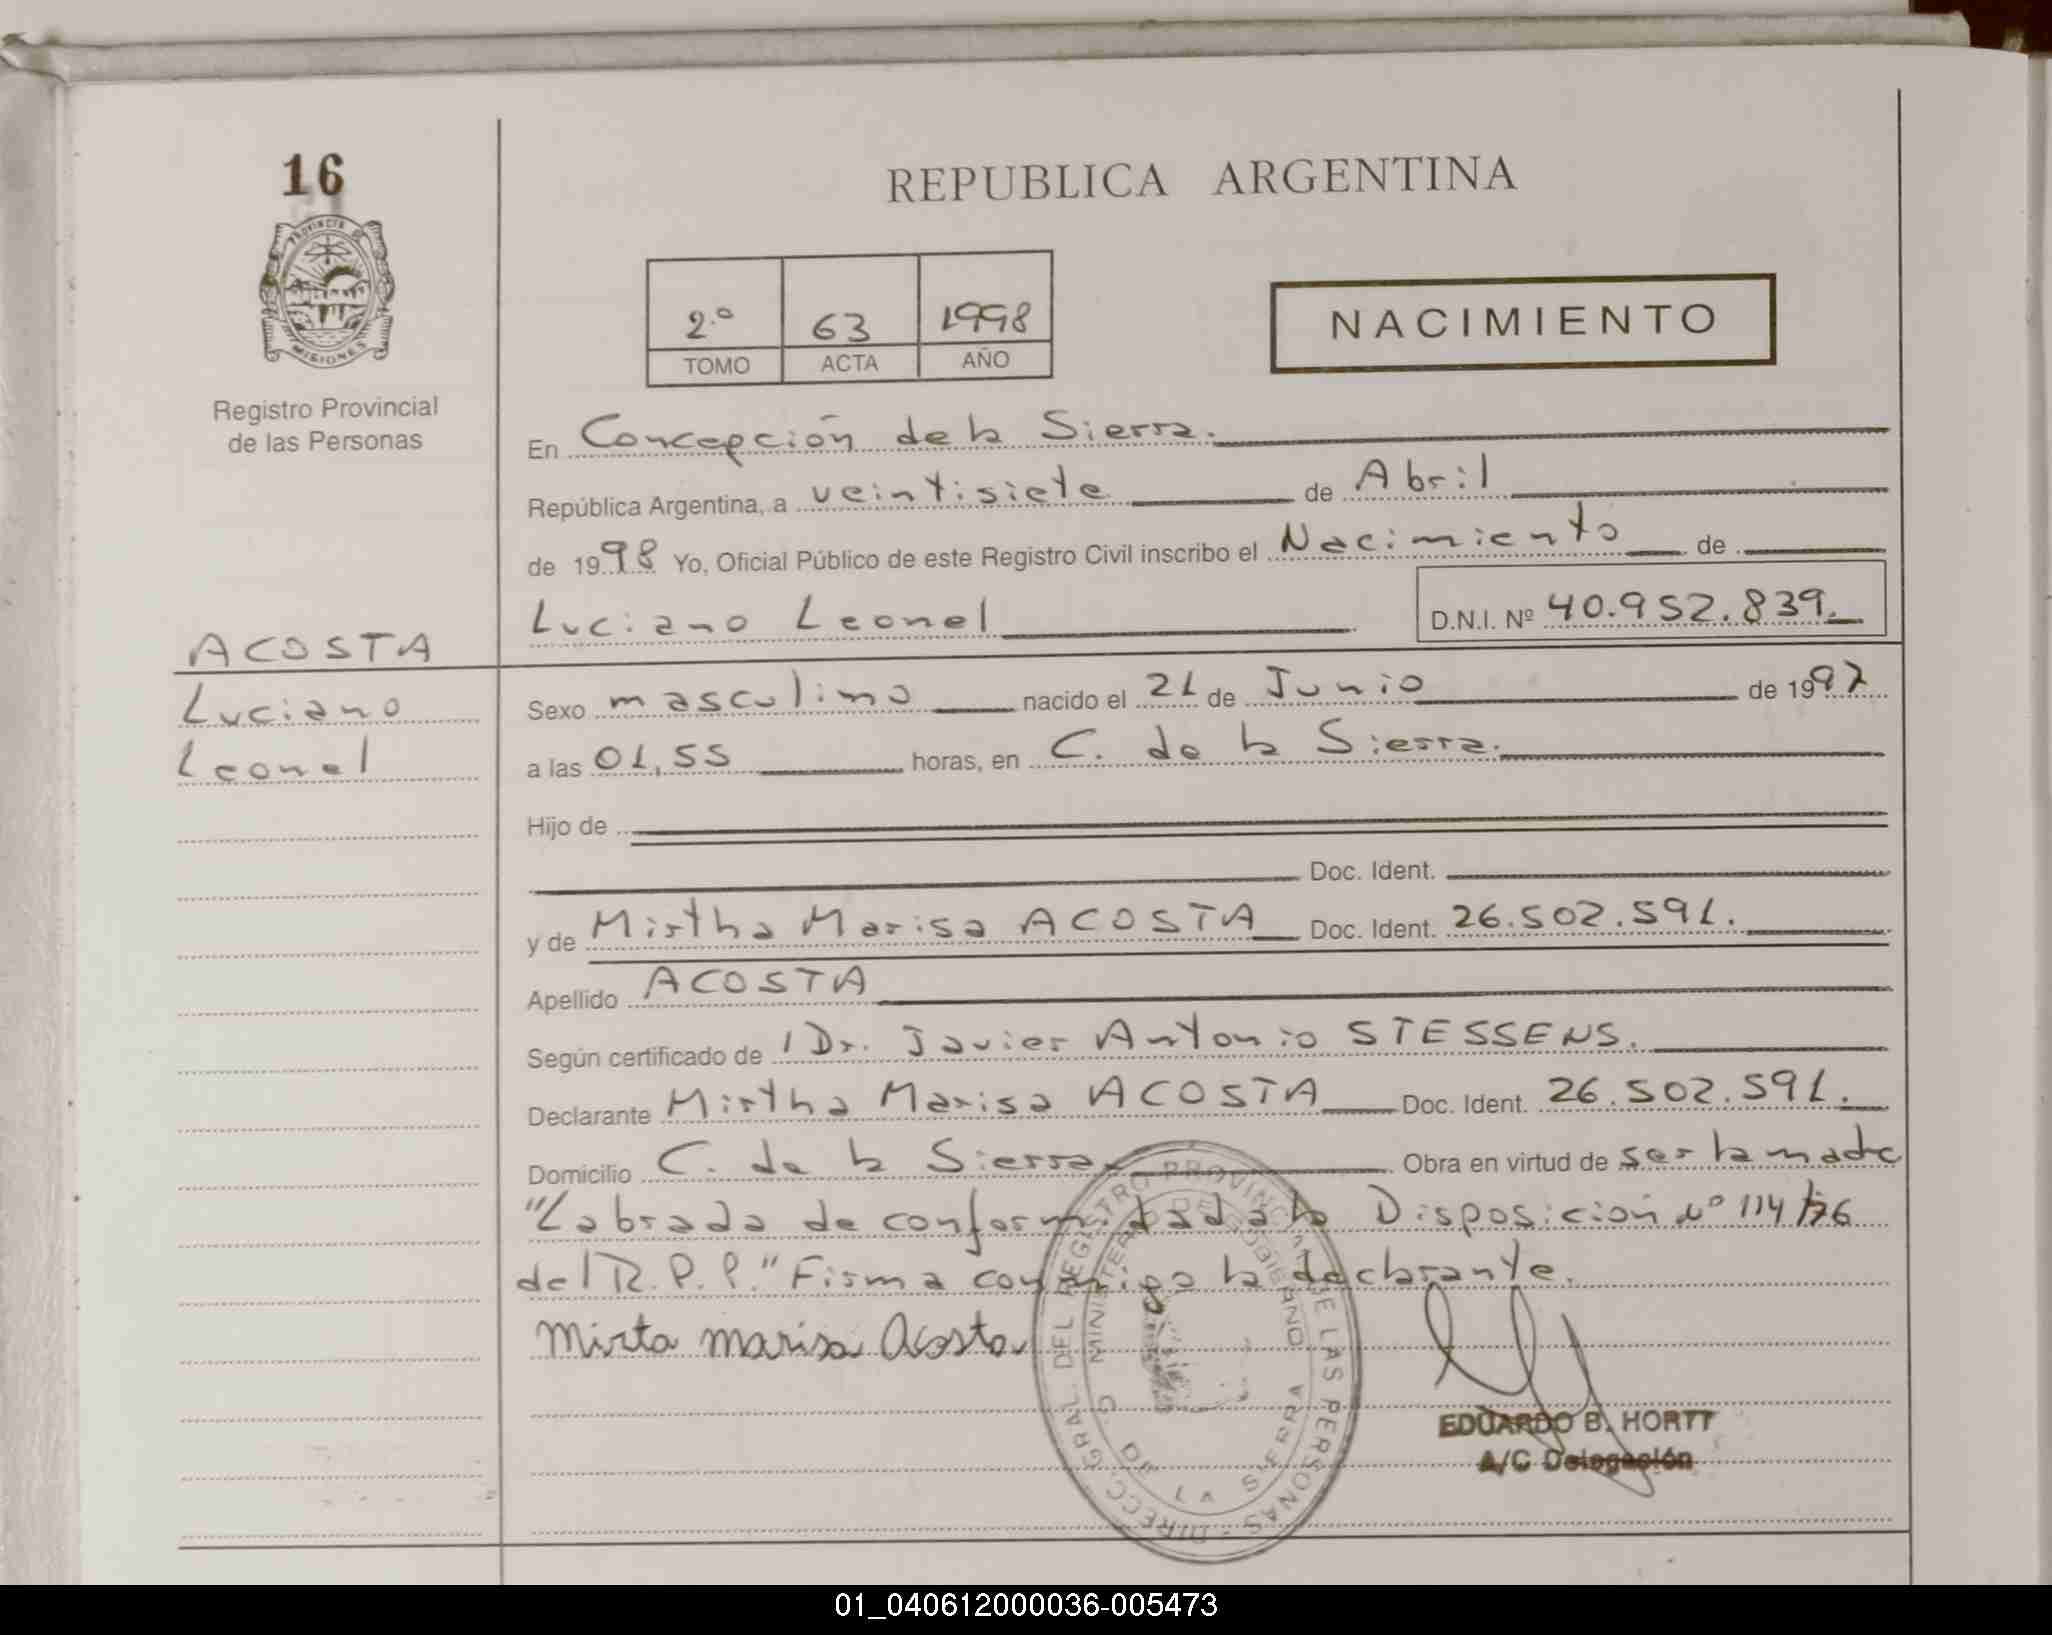 16
REPUBLICA ARGENTINA
PROVINCIA DE
MISIONES
2.º 63 1998
TOMO ACTA AÑO
NACIMIENTO
Registro Provincial
de las Personas
En Concepción de la Sierra.
República Argentina, a veintisiete de Abril
de 1998 Yo, Oficial Público de este Registro Civil inscribo el Nacimiento de
Luciano Leonel D.N.I. Nº 40.952.839.
ACOSTA
Luciano
Leonel
Sexo masculino nacido el 21 de Junio de 1997
a las 01,55 horas, en C. de la Sierra.
Hijo de
Doc. Ident.
y de Mirtha Marisa ACOSTA Doc. Ident. 26.502.591.
Apellido ACOSTA
Según certificado de Dr. Javier Antonio STESSENS.
Declarante Mirtha Marisa ACOSTA Doc. Ident. 26.502.591.
Domicilio C. de la Sierra Obra en virtud de ser la madre
"Labrada de conformidad a la Disposición Nº 114/76
del R.P.P." Firma conmigo la declarante.
Mirta marisa Acosta
DIRECC. GRAL. DEL REGISTRO PROVINCIAL DE LAS PERSONAS
MINISTERIO DE GOBIERNO
DE LA SIERRA
EDUARDO B. HORTT
A/C Delegación
01_040612000036-005473